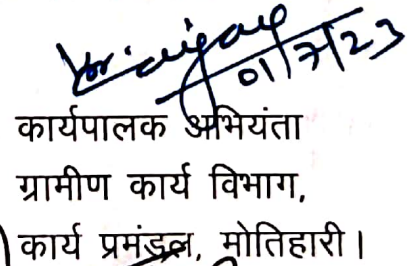 01/7/23
कार्यपालक अभियंता
ग्रामीण कार्य विभाग,
कार्य प्रमंडल, मोतिहारी।